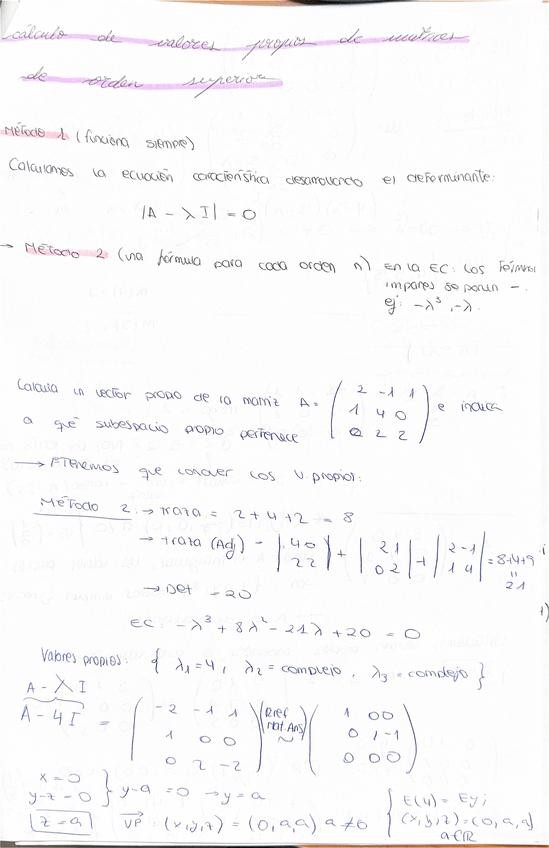 cálculo de valores propios de matrices
de orden superior
Método 1 (funciona siempre)
Calculamos la ecuación característica desarrollando el determinante:
|A - λI| = 0
→ Método 2 (una fórmula para cada orden n) En la EC: los términos
impares se ponen -.
ej: -λ³, -λ.
Calcula un vector propio de la matriz A = ( 2 -1 1 / 1 4 0 / 0 2 2 ) e indica
a qué subespacio propio pertenece
→ Tenemos que conocer los v propios:
Método 2: → traza = 2+4+2 = 8
→ traza (Adj) = |4 0 / 2 2| + |2 1 / 0 2| + |2 -1 / 1 4| = 8+4+9
= 21
→ Det = 20
EC - λ³ + 8λ² - 21λ + 20 = 0
Valores propios: { λ1 = 4, λ2 = complejo, λ3 = complejo }
A - λI
A - 4I = ( -2 -1 1 / 1 0 0 / 0 2 -2 ) (Rref Mat Ans) ~ ( 1 0 0 / 0 1 -1 / 0 0 0 )
x = 0
y - z = 0 } y - a = 0 → y = a
z = a
VP: (x,y,z) = (0,a,a) a ≠ 0 { E(4) = Ey;
(x,y,z) = (0,a,a)
a∈R